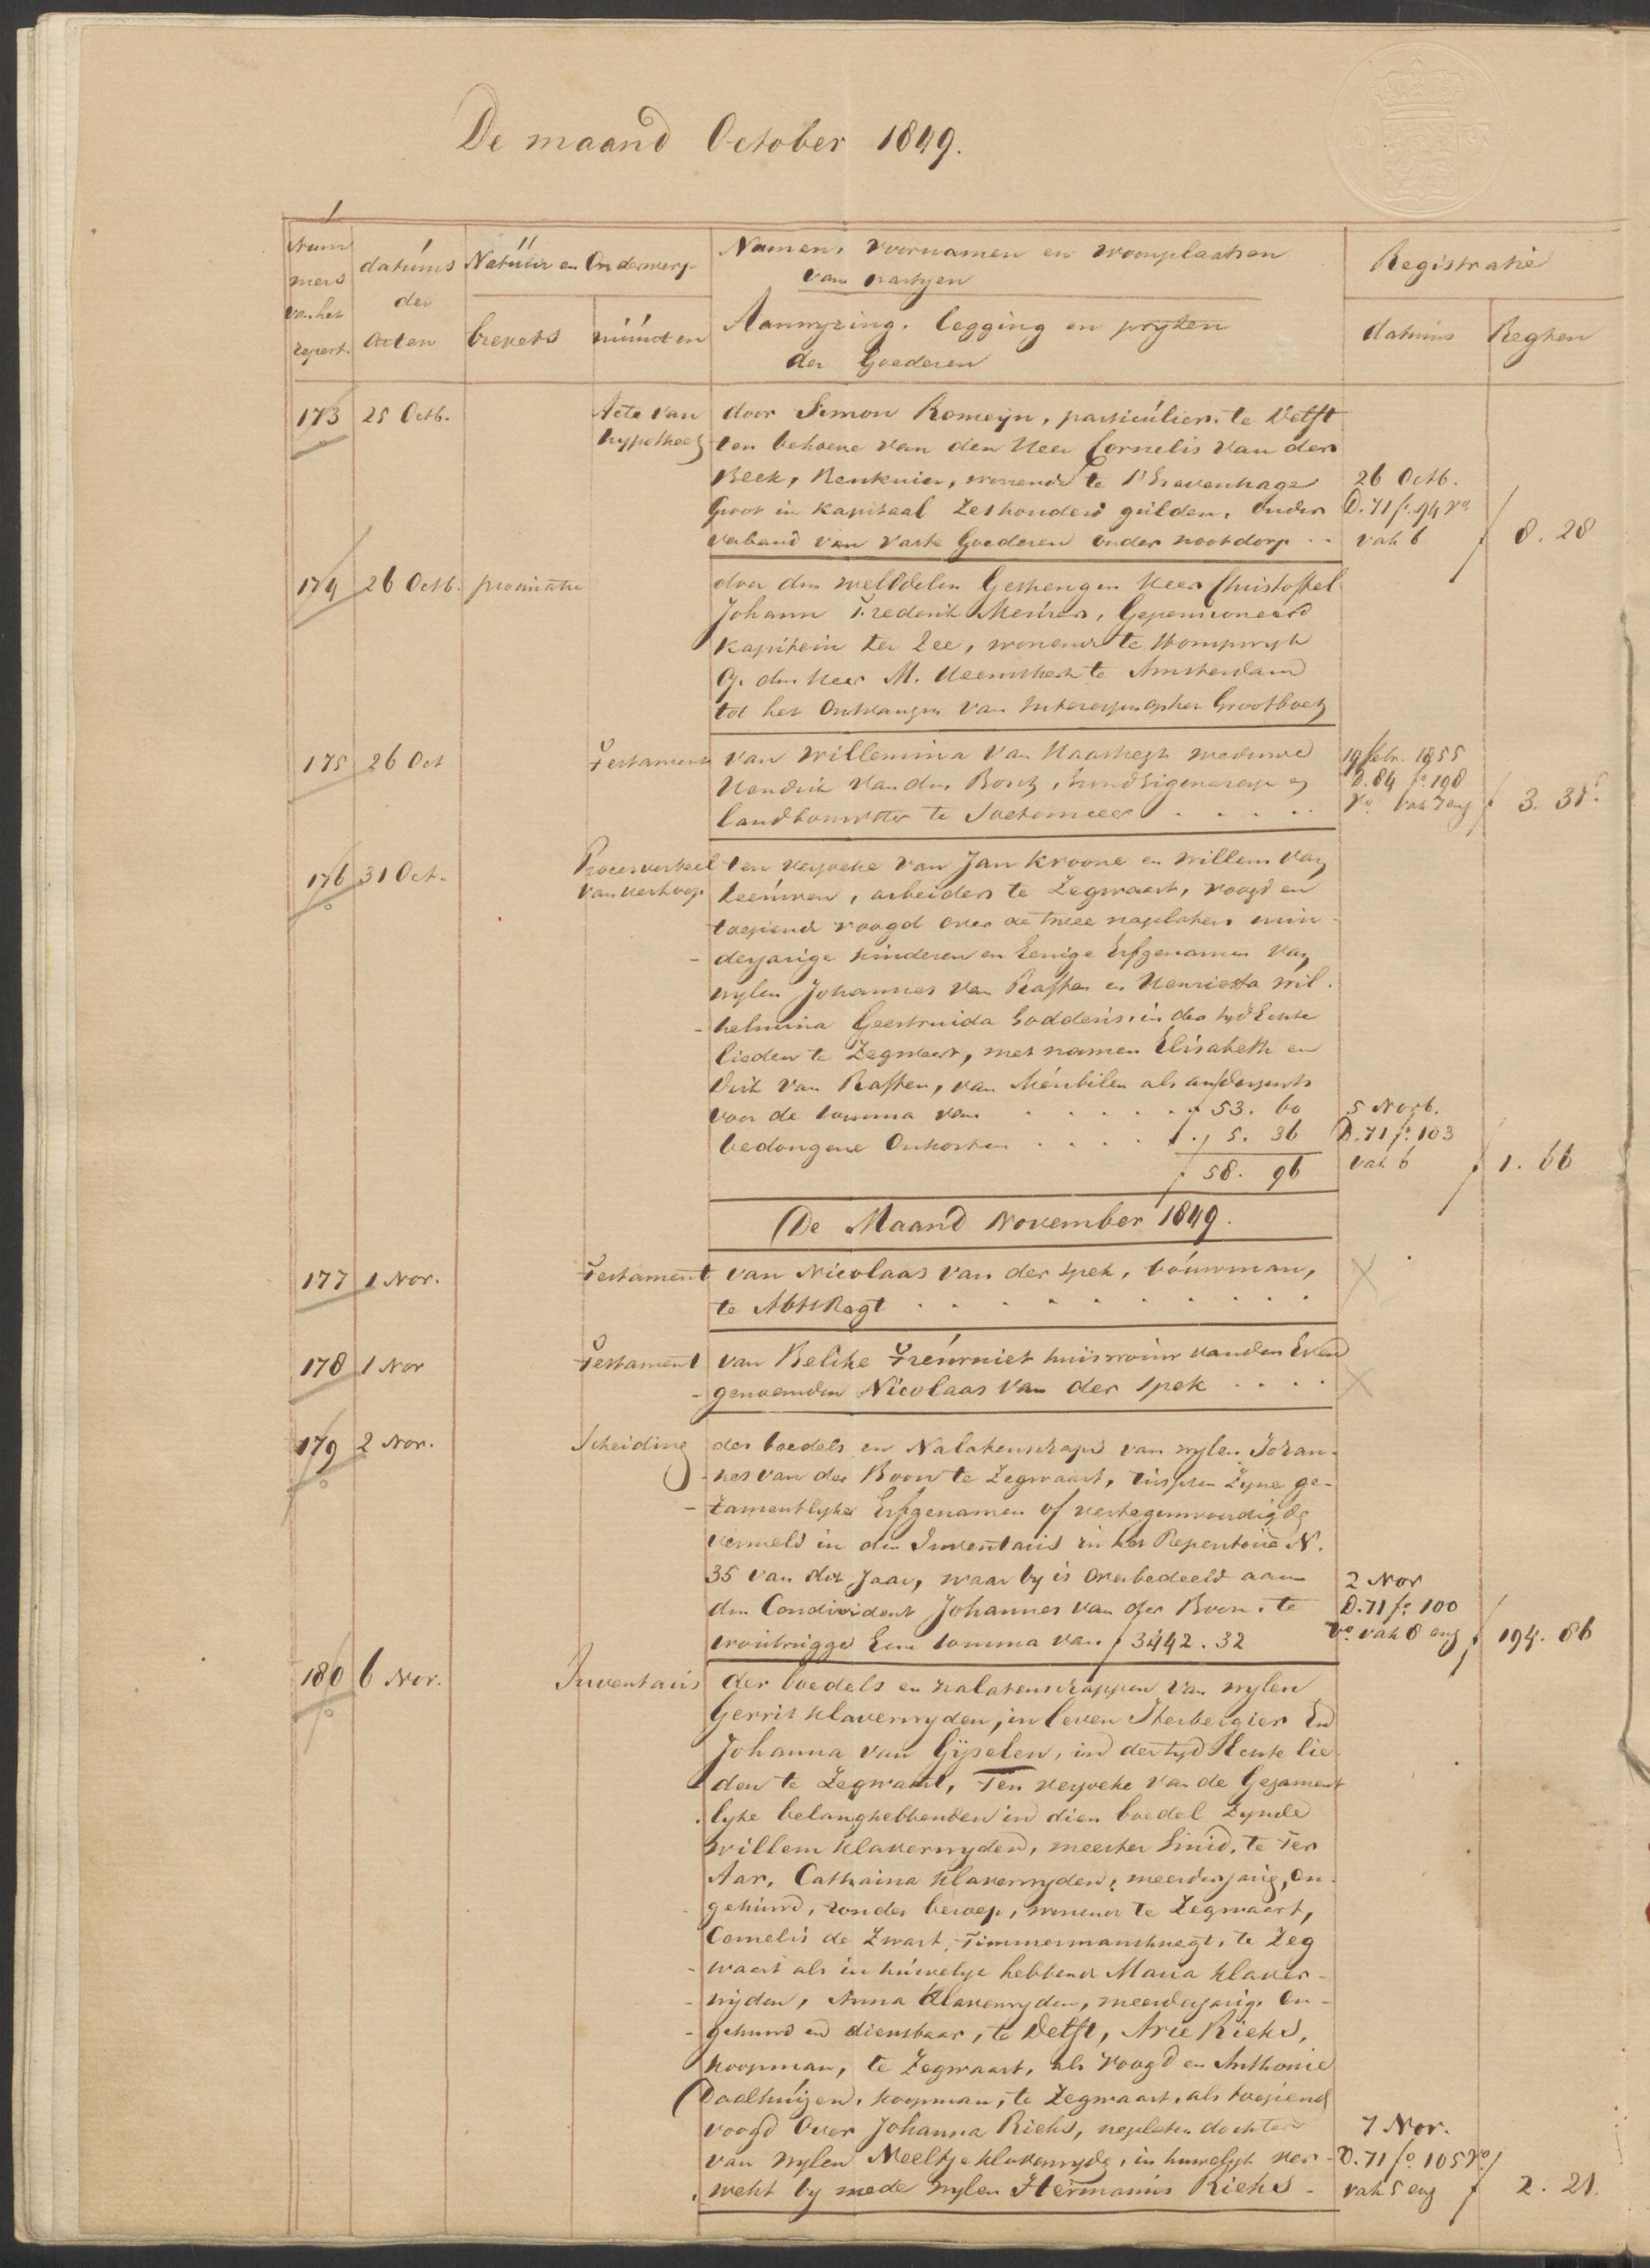 De maand October 1849.
Num
mers
van het
repert.
datums
der
Acten
Natuur en Onderwerp
brevets
minuten
Namen, voornamen en woonplaatsen
van partyen
Aanwyzing, legging en pryzen
der Goederen
Registratie
datums
Regten
173 25 Octb. Acte van door Simon Romeyn, particulier, te Delft
hypotheek ten behoeve van den Heer Cornelis van der
Beek, Rentenier, wonende te 's Gravenhage 26 Octb.
Groot in Kapitaal Zeshonderd gulden, onder D. 71 fo. 94 vo.
verband van vaste Goederen onder nootdorp .. vak 6 f 8. 28
174 26 Octb. procuratie door den welEdelen Gestrengen Heer Christoffel
Johann Frederik , Gepensioneerd
Kapitein ter Zee, wonende te Stompwyk
Op den Heer M. Heemskerk te Amsterdam
tot het Ontvangen van Interessen op het Grootboek
175 26 Oct Testament van Willemina van weduwe 19 febr. 1855
Hendrik van den Bosch, D. 84 fo. 198
landbouwster te Soetermeer . . . . . vo. vak 7 en f 3. 31
176 31 Oct. Procesverbaal ten verzoeke van Jan Kroone en Willem van
van verkoop Leeuwen, arbeiders te Zegwaart, voogd en
toeziend voogd over de twee nagelaten min-
- derjarige kinderen en Eenige Erfgenamen van
wylen Johannes van Raften en Henrietta Wil.
- helmina Geertruida Godderis, in der tyd Echte
lieden te Zegwaart, met namen Elisabeth en
Dirk van Raften, van Meubilen als anderzints
voor de somma van . . . . . f 53. 60 5 Novb.
bedongene Onkosten . . . . f. 5. 36 D. 71 fo. 103
f 58. 96 vak 6 f 1. 66
De Maand November 1849.
177 1 Nov. Testament van Nicolaas van der Spek, bouwman,
te AbtsRegt . . . . . . . . . . X
178 1 Nov Testament van Belitie Treurniet huisvrouw van den Even
- genoemden Nicolaas van der Spek . . . . X
179 2 Nov. Scheiding des boedels en Nalatenschaps van wylen Johan-
- nes van der Boon te Zegwaart, tusschen Zyne ge-
- zamentlyke Erfgenamen of vertegenwoordigde
vermeld in den Inventaris in het Repertoire N.
35 van dit Jaar, waar by is Overbedeeld aan 2 Nov
den Condivident Johannes van der Boon, te D. 71 fo. 100
Woubrugge Eene somma van f 3442. 32 Vo. vak 8 en f 194. 86
180 6 Nov. Inventaris der boedels en nalatenschappen van wylen
Gerrit Klaverwyden, in leven Herbergier En
Johanna van Gyselen, in der tyd Echte lie
den te Zegwaart, Ten verzoeke van de Gezament
. lyke belanghebbenden in dien boedel Zynde
Willem Klaverwyden, meester Smid, te Ter
Aar, Catharina Klaverwyden, meerderjarig, on-
gehuwd, zonder beroep, wonende te Zegwaart,
Cornelis de Zwart, Timmermansknegt, te Zeg
- waart als in huwelyk hebbende Maria Klaver-
- wyden, Anna Klaverwyden, meerderjarige on-
- gehuwd en dienstbaar, te Delft, Arie Rieks,
Koopman, te Zegwaart, als voogd en Anthonie
Doolhuizen, koopman, te Zegwaart, als toeziend
voogd Over Johanna Rieks, nagelaten dochter 7 Nov.
van wylen Meeltje Klaverwyde, in huwelyk ver- D. 71 fo. 105 vo
. wekt by mede wylen Hermanus Rieks - vak 5 en f 2. 21.